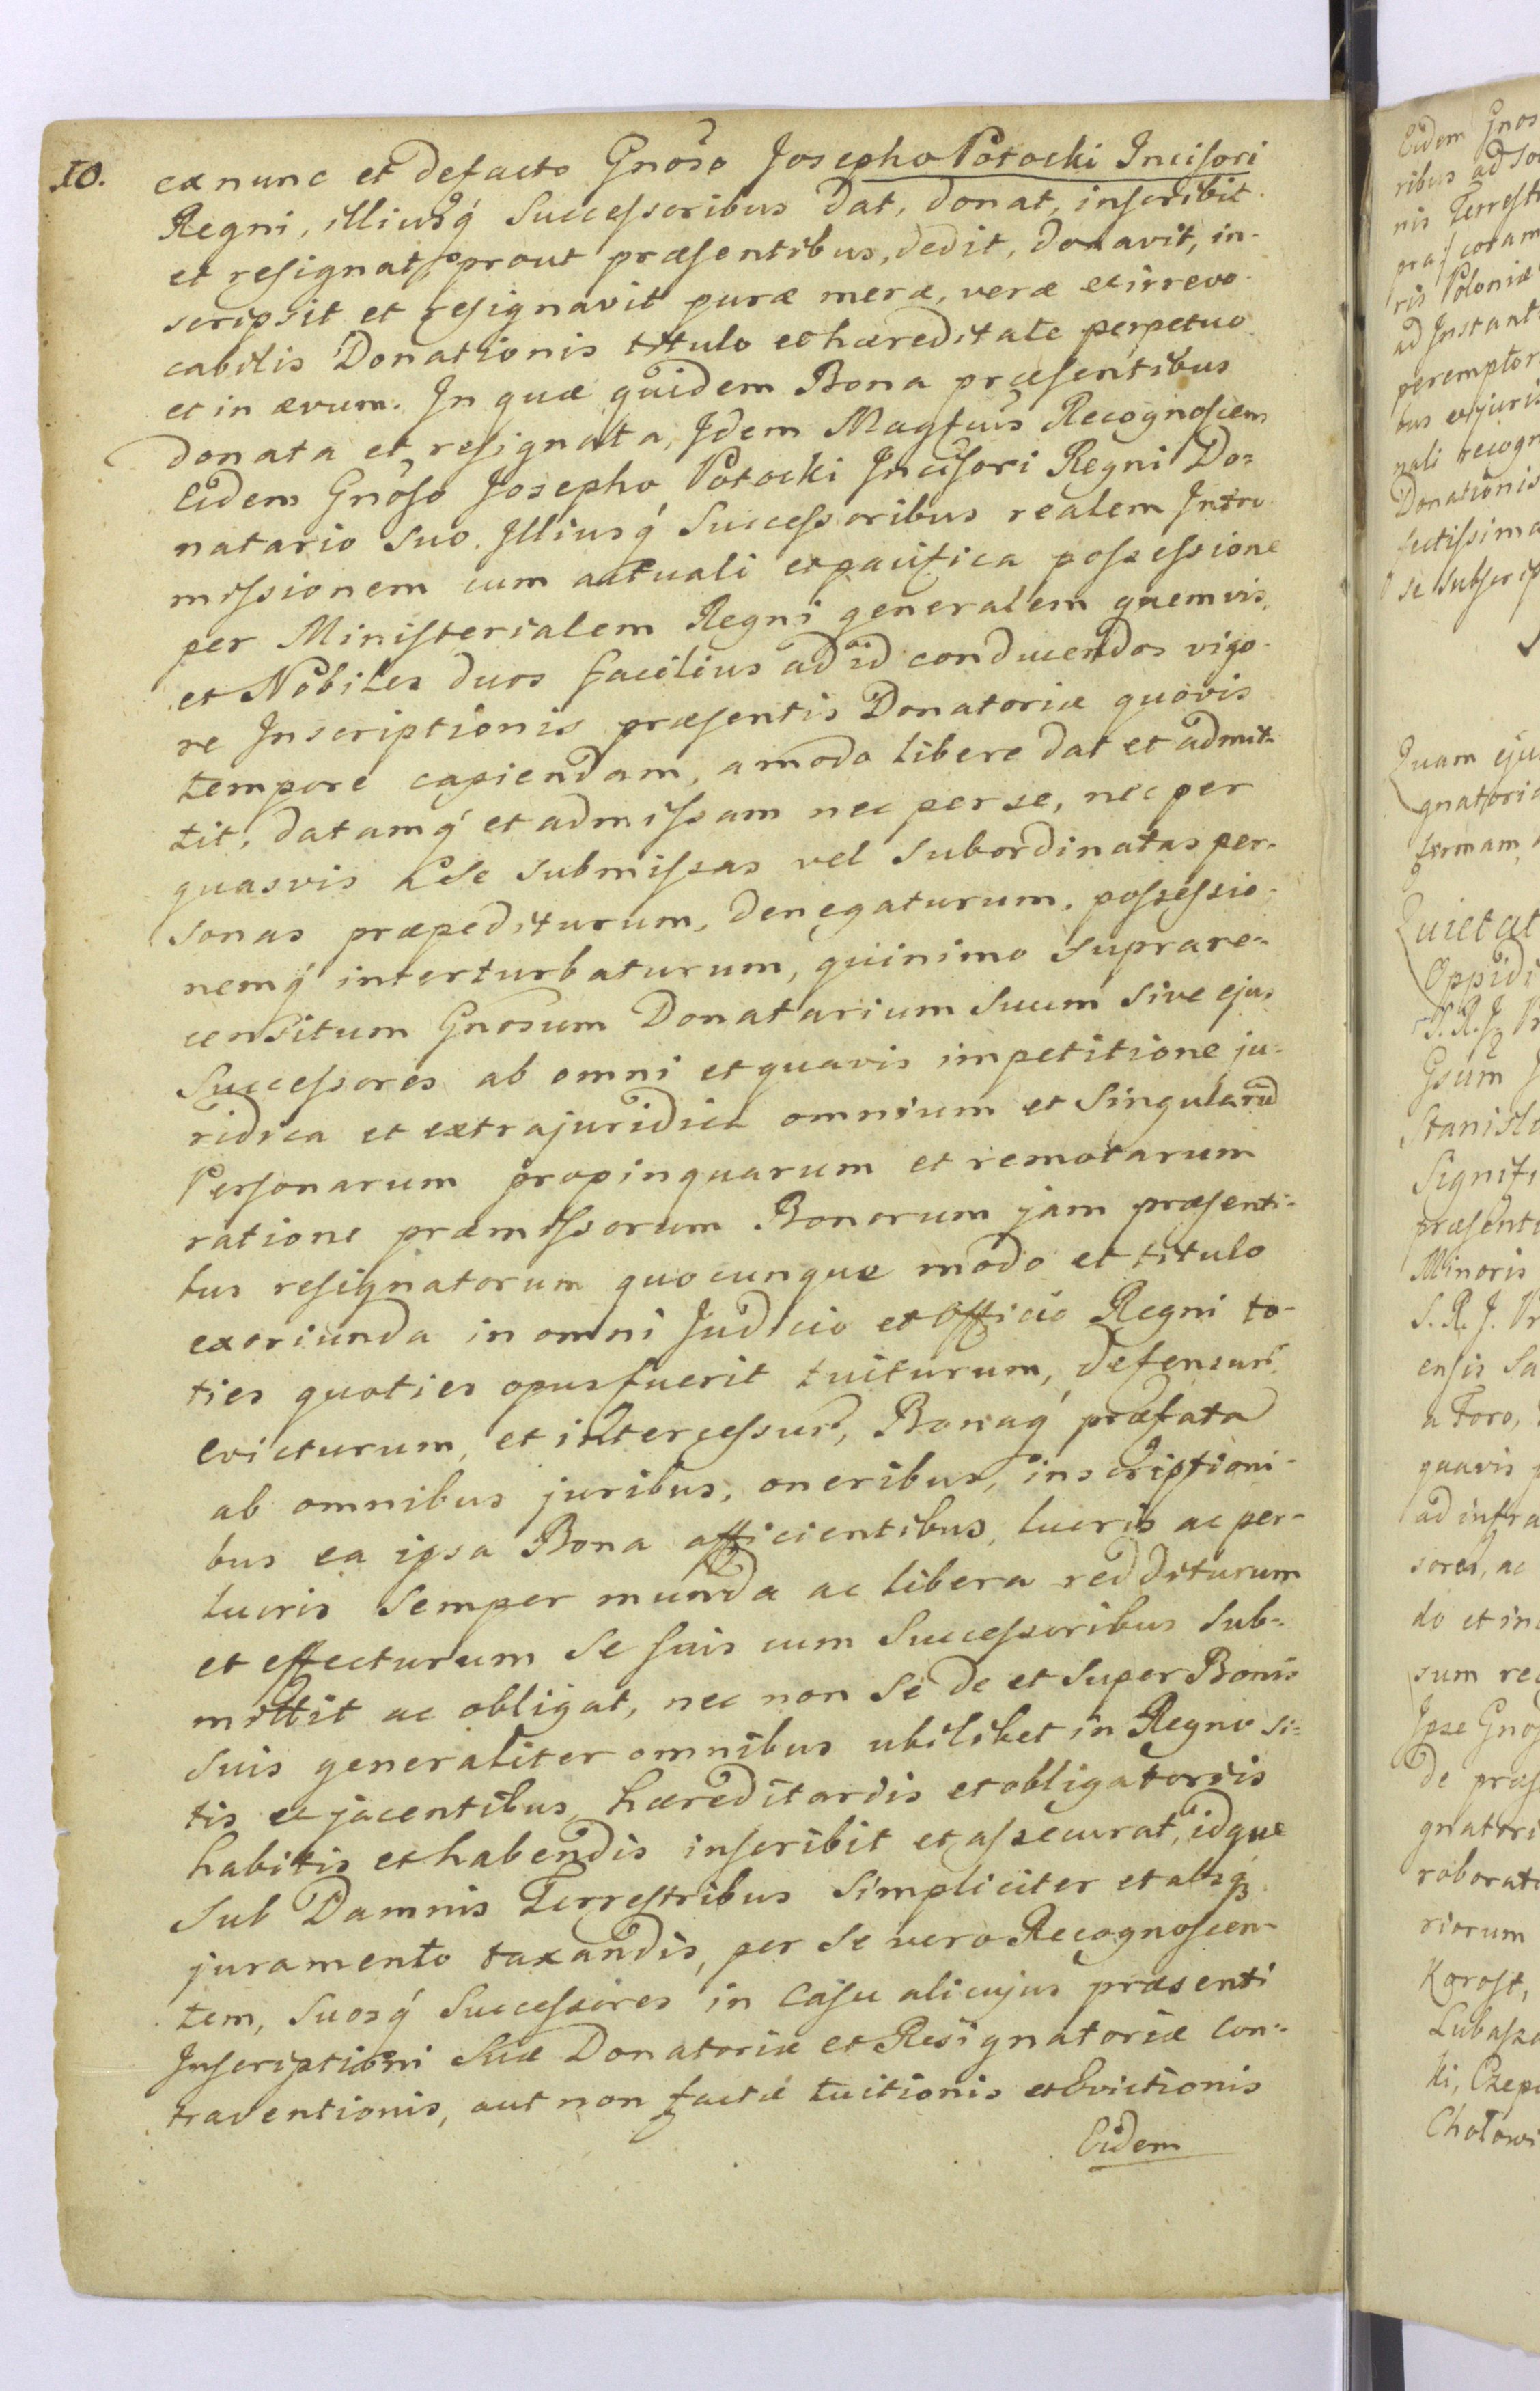 10.
ex nunc et defacto Gnoso Josepho Potocki Incisori
Regni, illiusq́ Successoribus dat, donat, inscribit
et resignat, prout præsentibus, dedit, donavit, in-
scripsit et resignavit puræ meræ, veræ et irrevo-
cabilis Donationis titulo et hæreditate perpetuo
et in ævum. In quæ quidem Bona præsentibus
donata et resignata, Idem Magfcus Recognoscens
Eidem Gnoso Josepho Potocki Incisori Regni Do-
natario suo. Illiusq́ Successoribus realem Intro
missionem cum actuali et pacifica possessione
per Ministerialem Regni generalem quemvis,
et Nobiles duos facilius ad id conducendos vigo-
re Inscriptionis præsentis Donatoriæ quovis
tempore capiendam, amodo libere dat et admit-
tit, datamq́ et admissam nec per se, nec per
quasvis a se submissas vel subordinatas per-
sonas præpediturum, denegaturum, possessio-
nemq́ interturbaturum, quinimo suprare-
censitum Gnosum Donatarium suum sive ejus
Successores ab omni et quavis impetitione ju-
ridica et extrajuridica omnium et singularū
Personarum propinquarum et remotarum
ratione præmissorum Bonorum jam præsenti-
bus resignatorum quocunque modo et titulo
exoriunda in omni Judicio et Officio Regni to-
ties quoties opus fuerit tuiturum, defensurū
evicturum, et intercessurū, Bonaq́ præfata
ab omnibus juribus, oneribus, inscriptioni-
bus ea ipsa Bona afficientibus, lucris ac per-
lucris semper munda ac libera redditurum
et effecturum se suis cum Successoribus sub-
mittit ac obligat, nec non se de et super Bonis
suis generaliter omnibus ubilibet in Regno si-
tis et jacentibus, hæreditariis et obligatoriis
habitis et habendis inscribit et assecurat, idque
sub Damnis Terrestribus simpliciter et absq
juramento taxandis, per se vero Recognoscen-
tem, suosq́ Successores in casu alicujus præsenti
Inscriptioni suæ Donatoriæ et Resignatoriæ con-
traventionis, aut non factæ tuitionis et Evictionis
Eidem
Eidem Gnos
ribus ad so
nis Terrestr
præs coram
ris Poloniæ
ad Instant
peremptor
bus et juris
nali recogn
Donationis
fectissima
se subscrip
Quam eju
gnatoria
firmam,
Quietat
Oppidi
S. R. J. Pr
Gsum J
Stanisla
Signifi
præsenti
Minoris
S. R. J. Pr
ensis Sa
a Foro,
quavis
ad infra
sores, ac
do et in
sum rec
Ipse Gnos
de præs
gnatori
roborata
riorum
Korost,
Lubasz
ki, Czep
Chotowi